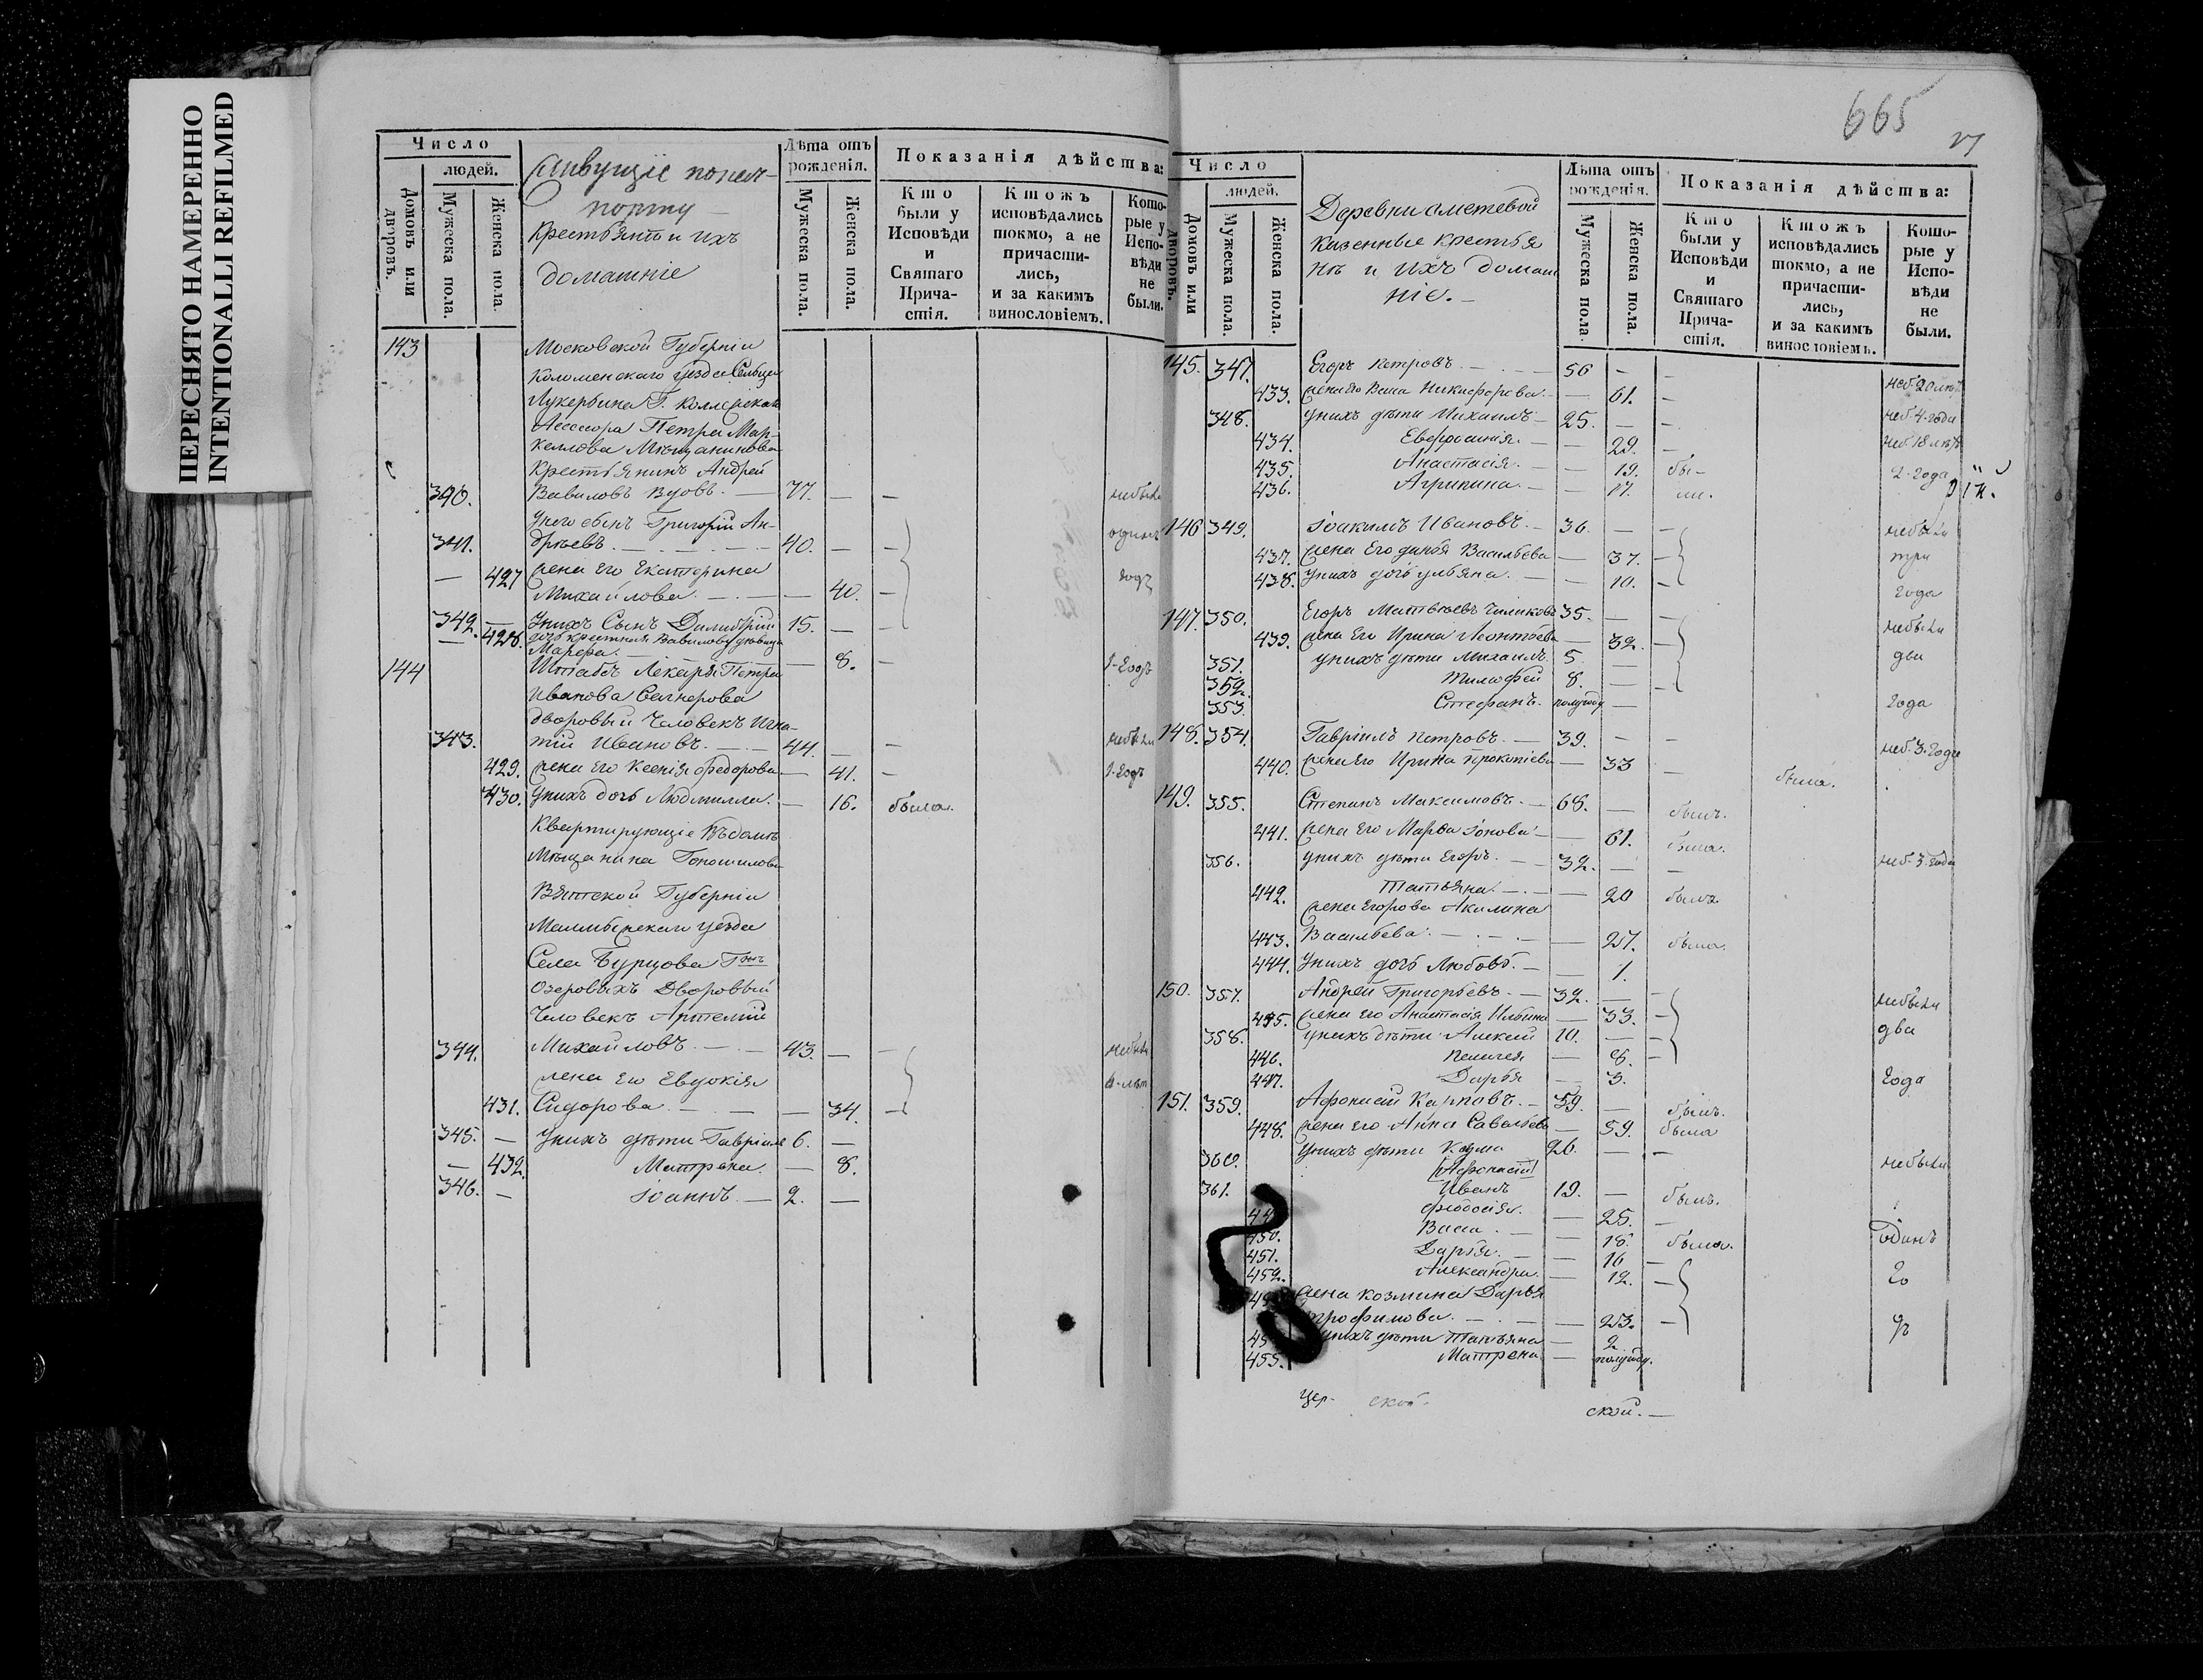 ПЕРЕСНЯТО НАМЕРЕННО
INTENTIONALLI REFILMED
Число
людей.
Домовъ или дворовъ.
Мужеска пола.
Женска пола.
живущіе
Крестьянъ и ихъ
домашніе
Лѣта отъ рожденія.
Мужеска пола.
Женска пола.
Показанія дѣйства:
Кто были у Исповѣди и Святаго Причастія.
Ктожъ исповѣдались токмо, а не причастились, и за какимъ винословіемъ.
Которые у Исповѣди не были.
143 Московской Губерніи
Коломенскаго уезда
Ассесора Петра Мар-
келлова Мещанинова
Крестьянинъ Андрей
340. Вавиловъ вдовъ. — 77. — — небылъ
У него сынъ Григорій Ан-
341. дреевъ. — 40. — — одинъ
— 427 жена его Екатерина годъ
Михайлова. — — 40. —
342. — У нихъ Сынъ Димитрій 15. — —
— 428. Марѳа. — — 8. — 1-годъ
144 Штабсъ Лекаря Петра
Иванова
дворовый Человекъ Игна-
343. тій Ивановъ. — 44. — — небылъ
429. жена его Ксенія Федорова — 41. — 1-годъ
430. У нихъ дочь Людмилла. — 16. была.
Квартирующіе въ доме
Мещанина
Вятской Губерніи
Малмыжскаго уезда
Села Бурцова Гжъ
Озеровыхъ Дворовый
Человекъ Артемій
344. Михайловъ. — 43. — — небылъ
жена его Евдокія
431. Сидорова — — 34. —
345. — У нихъ дети Гавріилъ 6. —
— 432. Матрена. — 8.
346. — Іоаннъ — 2. —
665
Число
людей.
Домовъ или дворовъ.
Мужеска пола.
Женска пола.
Деревни
казенные крестья
не и ихъ домаш
ніе. —
Лѣта отъ рожденія.
Мужеска пола.
Женска пола.
Показанія дѣйства:
Кто были у Исповѣди и Святаго Причастія.
Ктожъ исповѣдались токмо, а не причастились, и за какимъ винословіемъ.
Которые у Исповѣди не были.
145. 347. Егоръ Петровъ. — 56 — — неб. 20 летъ
433. жена его Васса Никифорова — — 61. — неб. 4. года
348. У нихъ дети Михаилъ — 25. — — неб. 18 летъ
434. Евфросинія. — — 29. — 2. года
435. Анастасія. — — 19. бы-
436. Агрипина. — — 17. ли.
146 349. Іоакимъ Ивановъ. — 36. — — небыли
437. жена его Васильева — 37. — три
438. У нихъ дочь Ульяна. — — 10. — года
147. 350. Егоръ Матвеевъ 35. — — небыли
439. жена его Ирина Леонтьева — 32. — два
351. У нихъ дети Михаилъ 5. —
352. Тимофей 8. — —
353. Стефанъ. полугоду — года
148. 354. Гавріилъ Петровъ. — 39. — — неб. 3. года
440. жена его Ирина Прокопіева — 33 — была.
149. 355. Степанъ Максимовъ. — 68. — былъ.
441. жена его Марѳа Іонова — — 61. была.
356. У нихъ дети Егоръ. — 32. — — неб. 3. года
442. Татьяна. — — 20 была.
жена Егорова Акилина
443. Васильева. — — 27. была.
444. У нихъ дочь Любовь. — — 1.
150. 357. Андрей Григорьевъ. — 32. — — небыли
445. жена его Анастасія Ильина — 33. — два
358. У нихъ дети Алексей 10. — —
446. Пелагея — 8. —
447. Дарья — 3. года
151. 359. Афонасій Карповъ. — 59. — былъ.
448. жена его Анна Савельева — 59. была
360. У нихъ дети Козма 26. — — небыли
[Афонасій]
361. Иванъ 19. — былъ.
Феодосія. — 25. —
450. Васса. — — 18. была. Одинъ
451. Дарья. — — 16 —
452. Александра. — 12. — го
жена Козмина Дарья
Трофимова. — — 23. — дъ
У нихъ дети Татьяна — 2
455. Матрена — полугоду.
ской. —